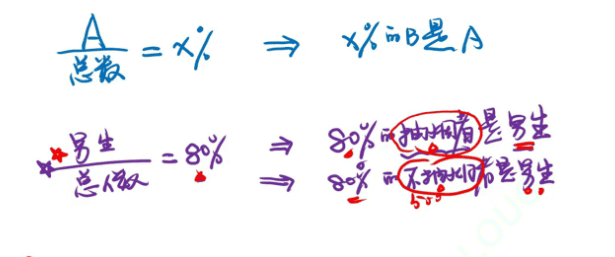 A/总数 = x% ⇒ x%的B是A
男生/总人数 = 80% ⇒ 80%的抽烟者是男生
⇒ 80%的不抽烟者是男生